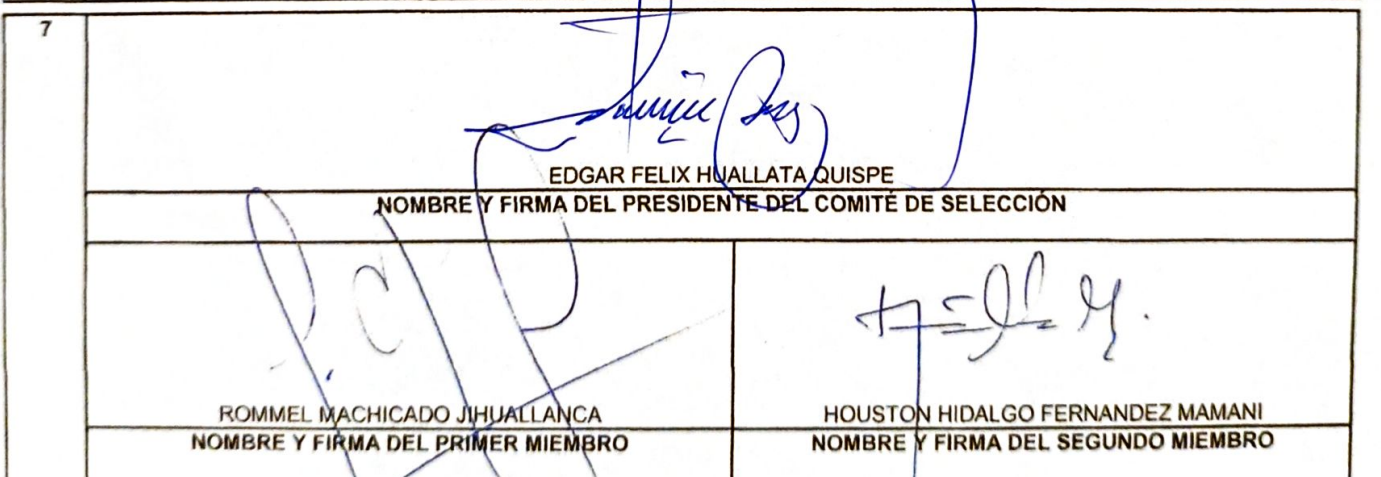 7
EDGAR FELIX HUALLATA QUISPE
NOMBRE Y FIRMA DEL PRESIDENTE DEL COMITÉ DE SELECCIÓN
ROMMEL MACHICADO JIHUALLANCA
NOMBRE Y FIRMA DEL PRIMER MIEMBRO
HOUSTON HIDALGO FERNANDEZ MAMANI
NOMBRE Y FIRMA DEL SEGUNDO MIEMBRO